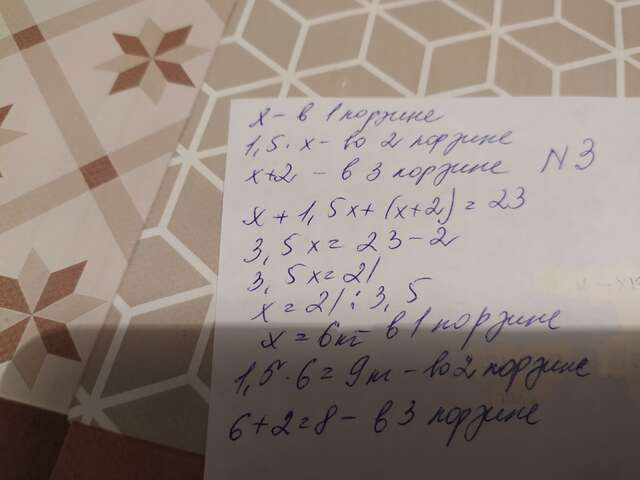 x - в 1 корзине
1,5 · x - во 2 корзине
x+2 - в 3 корзине
N 3
x + 1,5x + (x+2) = 23
3,5x = 23 - 2
3,5x = 21
x = 21 : 3,5
x = 6кг - в 1 корзине
1,5 · 6 = 9кг - во 2 корзине
6+2=8 - в 3 корзине